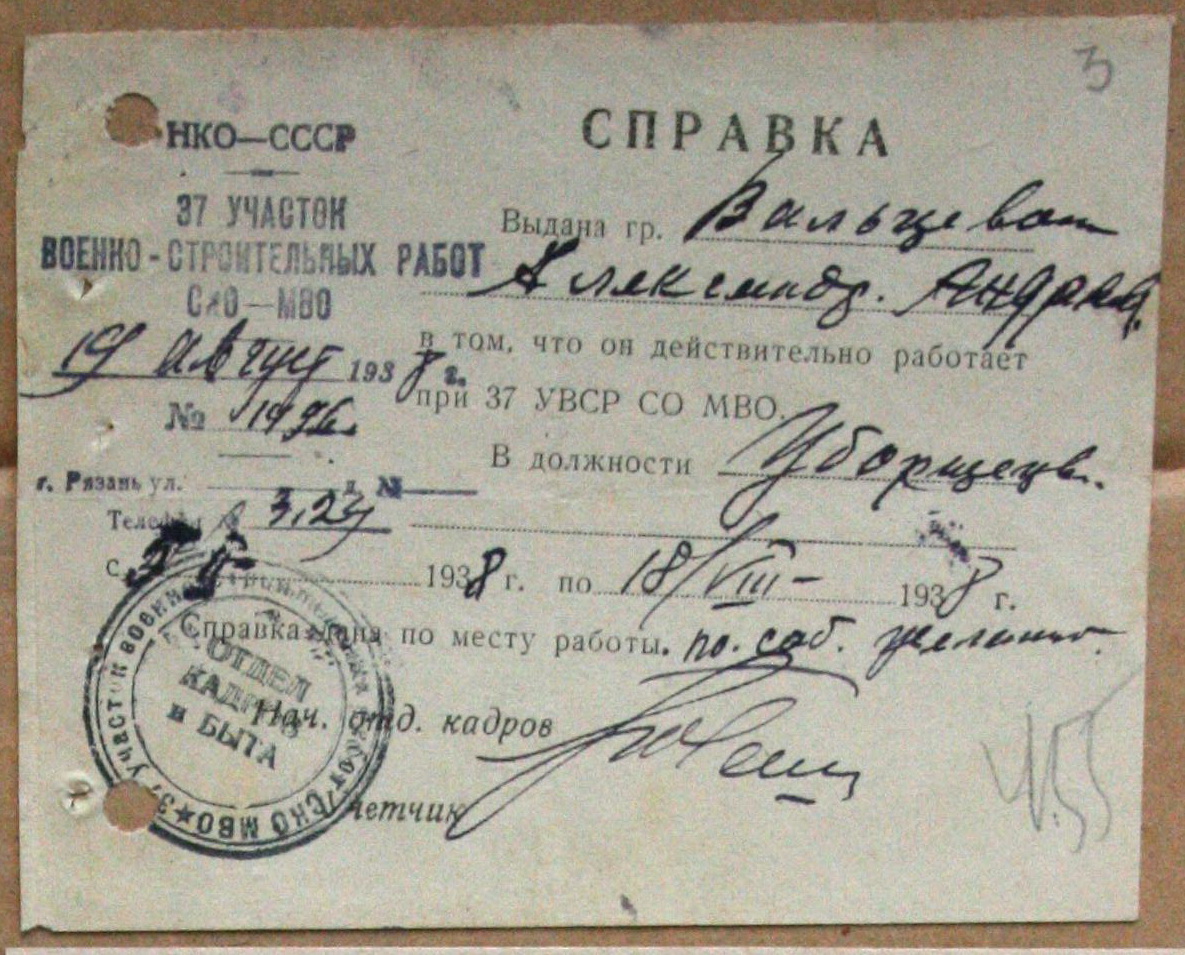 3
НКО—СССР
37 УЧАСТОК
ВОЕННО-СТРОИТЕЛЬНЫХ РАБОТ
СКО—МВО
19 август 1938 г.
№ 1996.
г. Рязань ул. д. №
Телефон № 3,23
СПРАВКА
Выдана гр.
Александр.
в том, что он действительно работает
при 37 УВСР СО МВО.
В должности
С 1938 г. по 18/VIII- 1938 г.
Справка дана по месту работы. по. соб. желанию.
Нач. отд. кадров
Счетчик
37 участок военно-строительных работ СКО МВО
ОТДЕЛ
КАДРОВ
и БЫТА